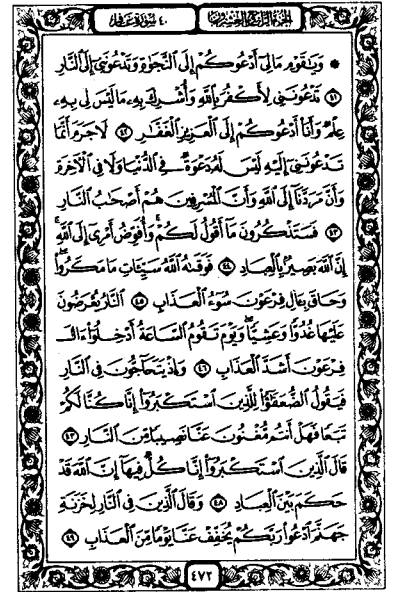 الجزء الرابع والعشرون
٤٠ سورة غافر
۞ وَيَٰقَوْمِ مَا لِىٓ أَدْعُوكُمْ إِلَى ٱلنَّجَوٰةِ وَتَدْعُونَنِىٓ إِلَى ٱلنَّارِ
٤١ تَدْعُونَنِى لِأَكْفُرَ بِٱللَّهِ وَأُشْرِكَ بِهِۦ مَا لَيْسَ لِى بِهِۦ
عِلْمٌ وَأَنَا۠ أَدْعُوكُمْ إِلَى ٱلْعَزِيزِ ٱلْغَفَّٰرِ ٤٢ لَا جَرَمَ أَنَّمَا
تَدْعُونَنِىٓ إِلَيْهِ لَيْسَ لَهُۥ دَعْوَةٌ فِى ٱلدُّنْيَا وَلَا فِى ٱلْأَخِرَةِ
وَأَنَّ مَرَدَّنَآ إِلَى ٱللَّهِ وَأَنَّ ٱلْمُسْرِفِينَ هُمْ أَصْحَٰبُ ٱلنَّارِ
٤٣ فَسَتَذْكُرُونَ مَآ أَقُولُ لَكُمْ ۚ وَأُفَوِّضُ أَمْرِىٓ إِلَى ٱللَّهِ ۚ
إِنَّ ٱللَّهَ بَصِيرٌۢ بِٱلْعِبَادِ ٤٤ فَوَقَىٰهُ ٱللَّهُ سَيِّـَٔاتِ مَا مَكَرُوا۟ ۖ
وَحَاقَ بِـَٔالِ فِرْعَوْنَ سُوٓءُ ٱلْعَذَابِ ٤٥ ٱلنَّارُ يُعْرَضُونَ
عَلَيْهَا غُدُوًّا وَعَشِيًّا ۖ وَيَوْمَ تَقُومُ ٱلسَّاعَةُ أَدْخِلُوٓا۟ ءَالَ
فِرْعَوْنَ أَشَدَّ ٱلْعَذَابِ ٤٦ وَإِذْ يَتَحَآجُّونَ فِى ٱلنَّارِ
فَيَقُولُ ٱلضُّعَفَٰٓؤُا۟ لِلَّذِينَ ٱسْتَكْبَرُوٓا۟ إِنَّا كُنَّا لَكُمْ
تَبَعًا فَهَلْ أَنتُم مُّغْنُونَ عَنَّا نَصِيبًا مِّنَ ٱلنَّارِ ٤٧
قَالَ ٱلَّذِينَ ٱسْتَكْبَرُوٓا۟ إِنَّا كُلٌّ فِيهَآ إِنَّ ٱللَّهَ قَدْ
حَكَمَ بَيْنَ ٱلْعِبَادِ ٤٨ وَقَالَ ٱلَّذِينَ فِى ٱلنَّارِ لِخَزَنَةِ
جَهَنَّمَ ٱدْعُوا۟ رَبَّكُمْ يُخَفِّفْ عَنَّا يَوْمًا مِّنَ ٱلْعَذَابِ ٤٩
٤٧٢